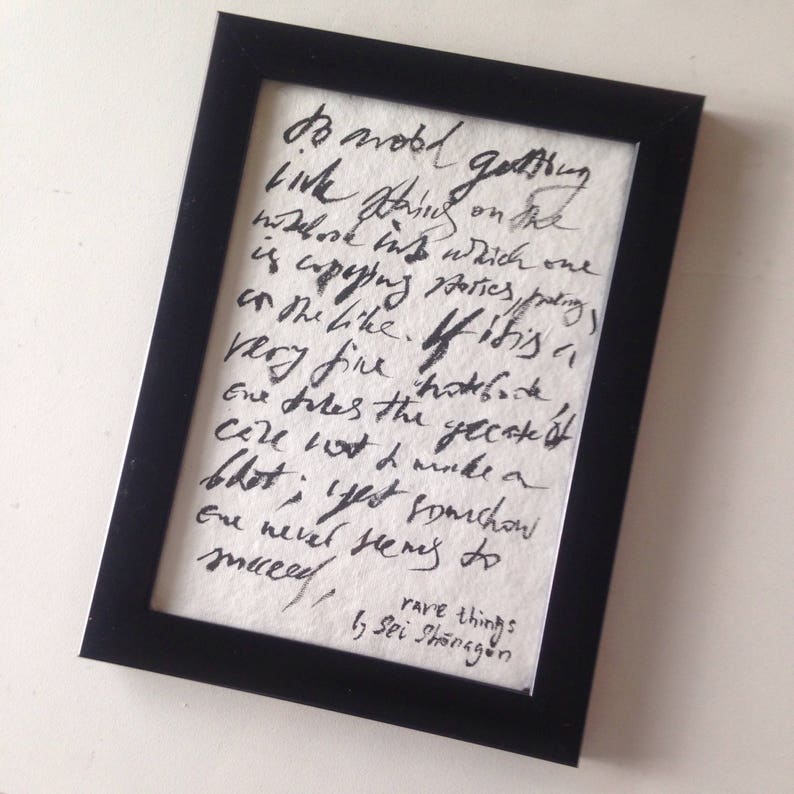 to avoid getting
ink stains on the
notebook into which one
is copying stories, poems,
or the like. If it is a
very fine notebook,
one takes the greatest
care not to make a
blot; yet somehow
one never seems to
succeed.
rare things
by Sei Shōnagon